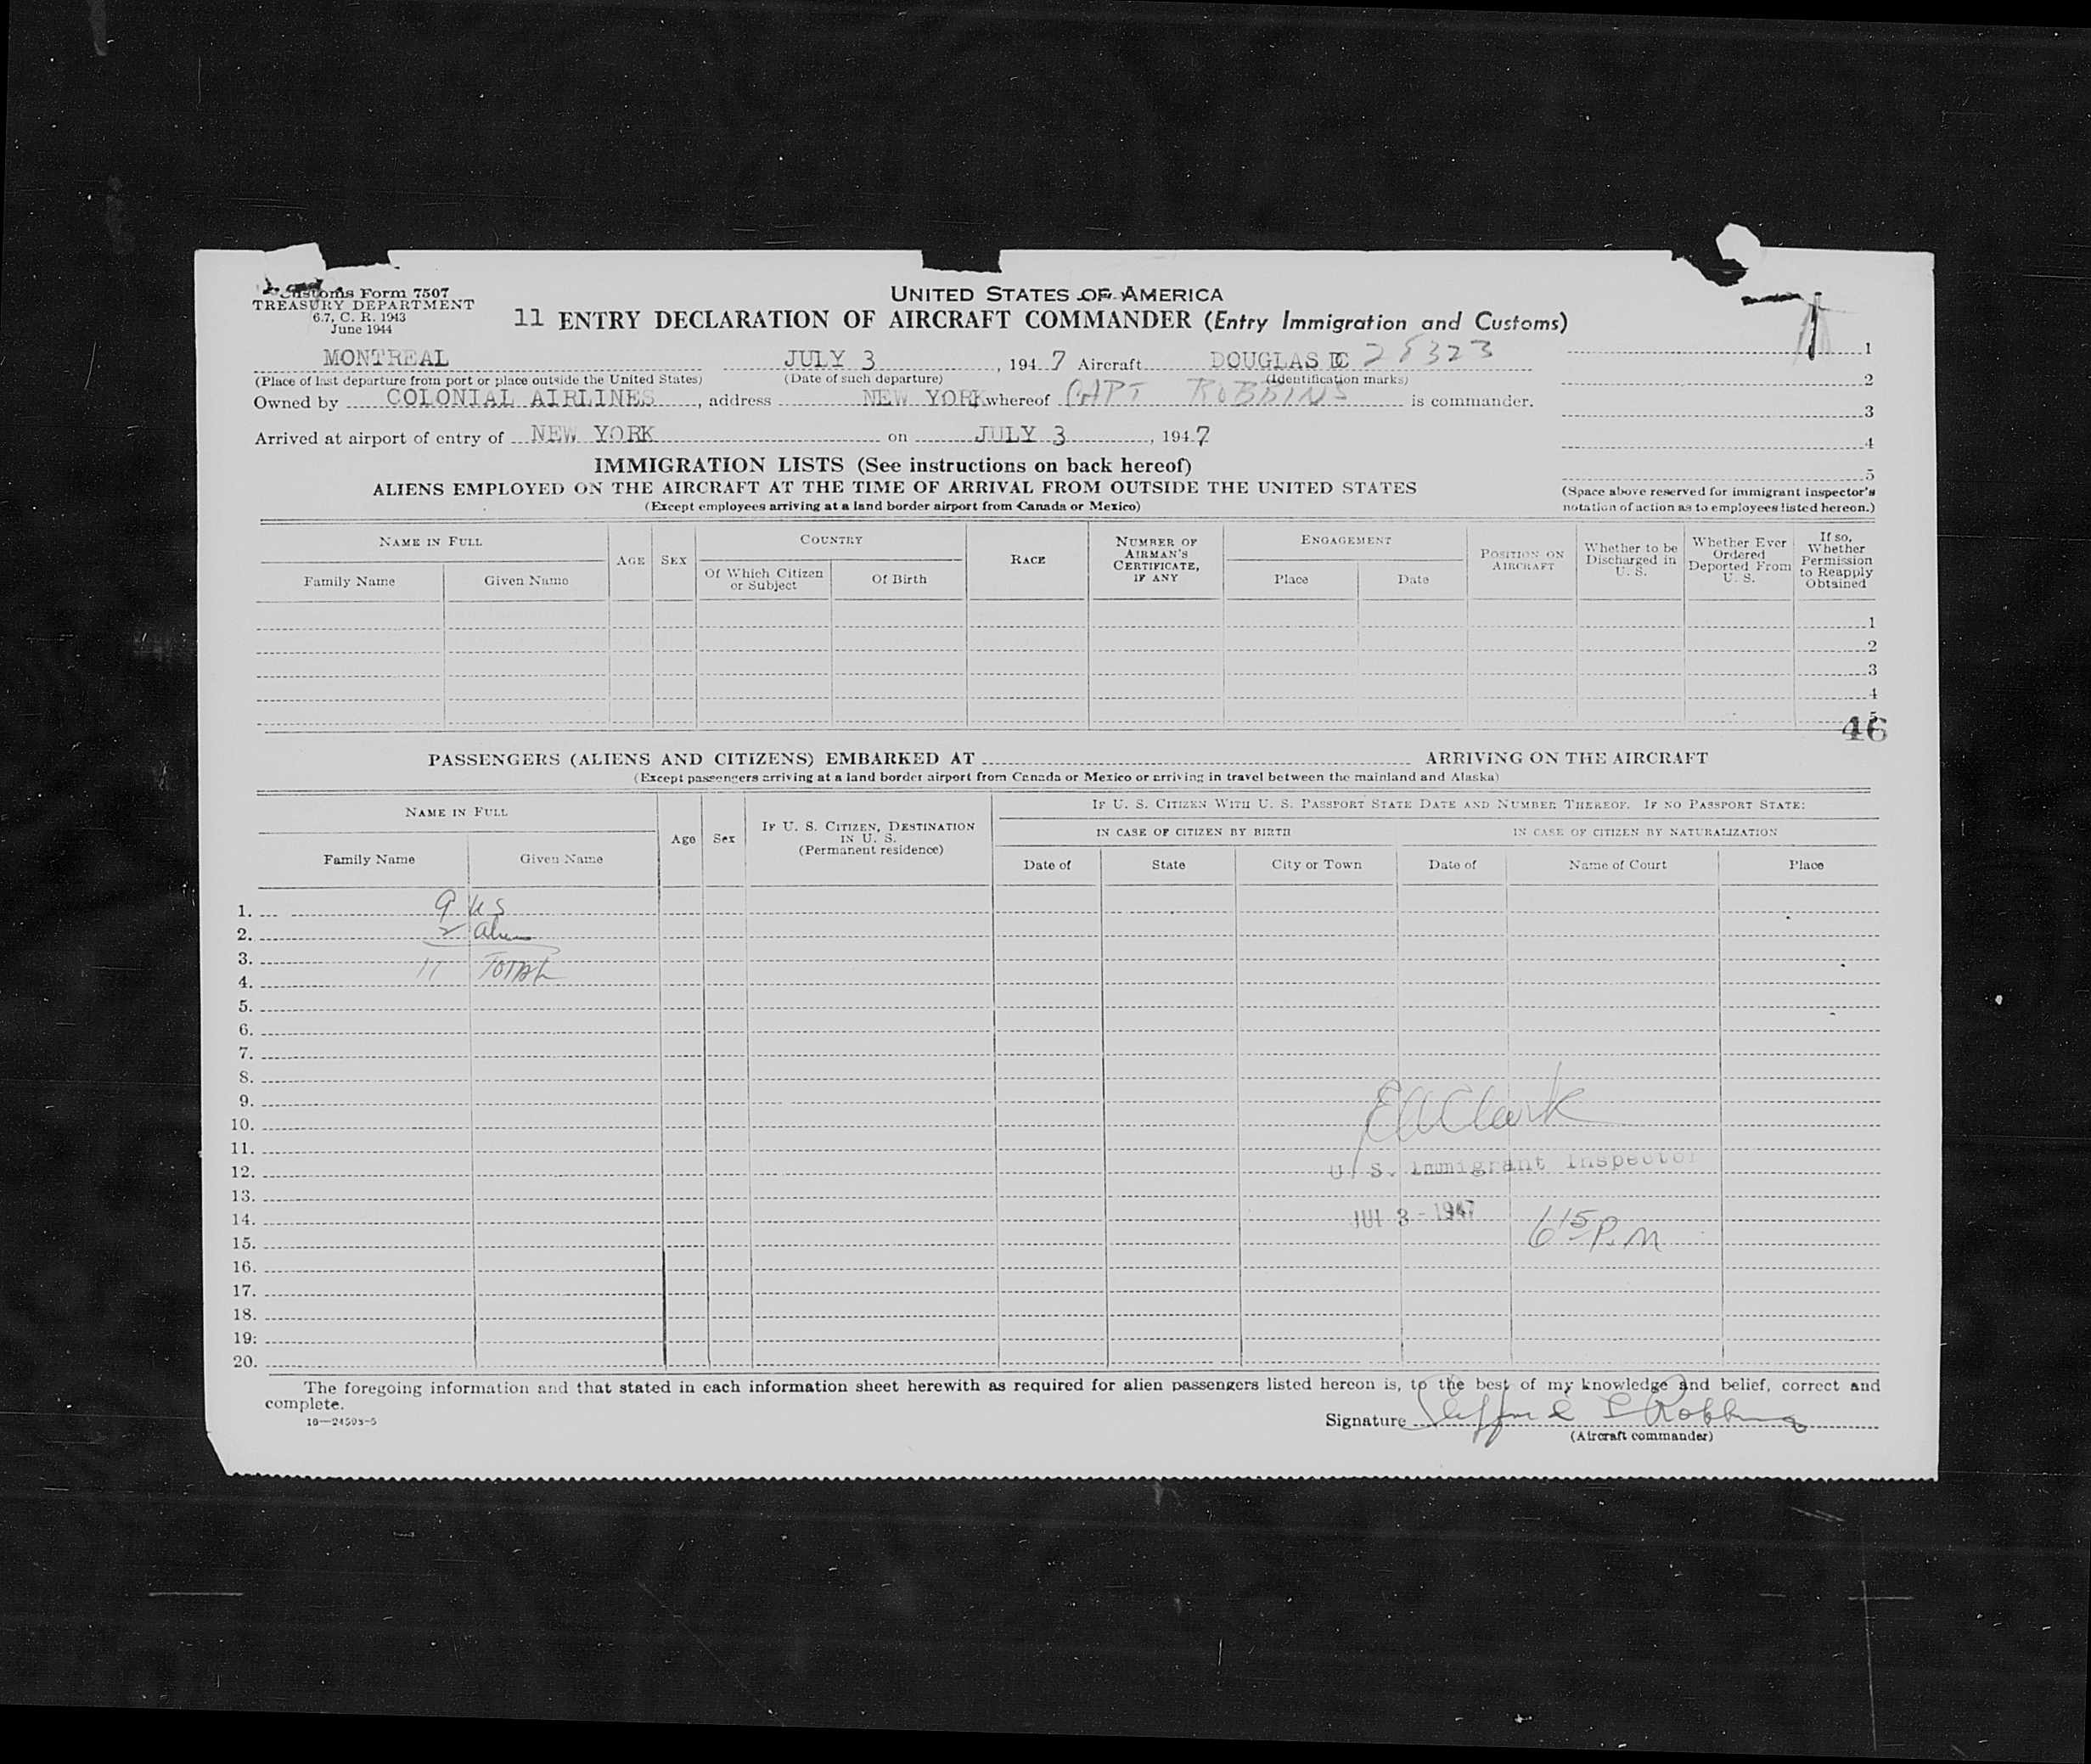 Customs Form 7507
TREASURY DEPARTMENT
6.7, C. R. 1943
June 1944
UNITED STATES OF AMERICA
11 ENTRY DECLARATION OF AIRCRAFT COMMANDER (Entry Immigration and Customs)
MONTREAL JULY 3, 1947 Aircraft DOUGLAS DC 28323
(Place of last departure from port or place outside the United States) (Date of such departure) (Identification marks)
Owned by COLONIAL AIRLINES, address NEW YORK whereof CAPT ROBBINS is commander.
Arrived at airport of entry of NEW YORK on JULY 3, 1947
1
2
3
4
5
(Space above reserved for immigrant inspector's
notation of action as to employees listed hereon.)
IMMIGRATION LISTS (See instructions on back hereof)
ALIENS EMPLOYED ON THE AIRCRAFT AT THE TIME OF ARRIVAL FROM OUTSIDE THE UNITED STATES
(Except employees arriving at a land border airport from Canada or Mexico)
NAME IN FULL
Family Name Given Name
AGE
SEX
COUNTRY
Of Which Citizen or Subject
Of Birth
RACE
NUMBER OF AIRMAN'S CERTIFICATE, IF ANY
ENGAGEMENT
Place Date
POSITION ON AIRCRAFT
Whether to be Discharged in U. S.
Whether Ever Ordered Deported From U. S.
If so, Whether Permission to Reapply Obtained
1
2
3
4
5
46
PASSENGERS (ALIENS AND CITIZENS) EMBARKED AT ARRIVING ON THE AIRCRAFT
(Except passengers arriving at a land border airport from Canada or Mexico or arriving in travel between the mainland and Alaska)
NAME IN FULL
Family Name Given Name
Age
Sex
IF U. S. CITIZEN, DESTINATION IN U. S.
(Permanent residence)
IF U. S. CITIZEN WITH U. S. PASSPORT STATE DATE AND NUMBER THEREOF. IF NO PASSPORT STATE:
IN CASE OF CITIZEN BY BIRTH IN CASE OF CITIZEN BY NATURALIZATION
Date of State City or Town Date of Name of Court Place
1. 9 US
2. 2 alien
3.
11 TOTAL
4.
5.
6.
7.
8.
9.
10. EA Clark
11.
12. U. S. Immigrant Inspector
13.
14. JUL 3 - 1947 6 15 P.M
15.
16.
17.
18.
19.
20.
The foregoing information and that stated in each information sheet herewith as required for alien passengers listed hereon is, to the best of my knowledge and belief, correct and
complete.
16—24593-5
Signature Robbins
(Aircraft commander)